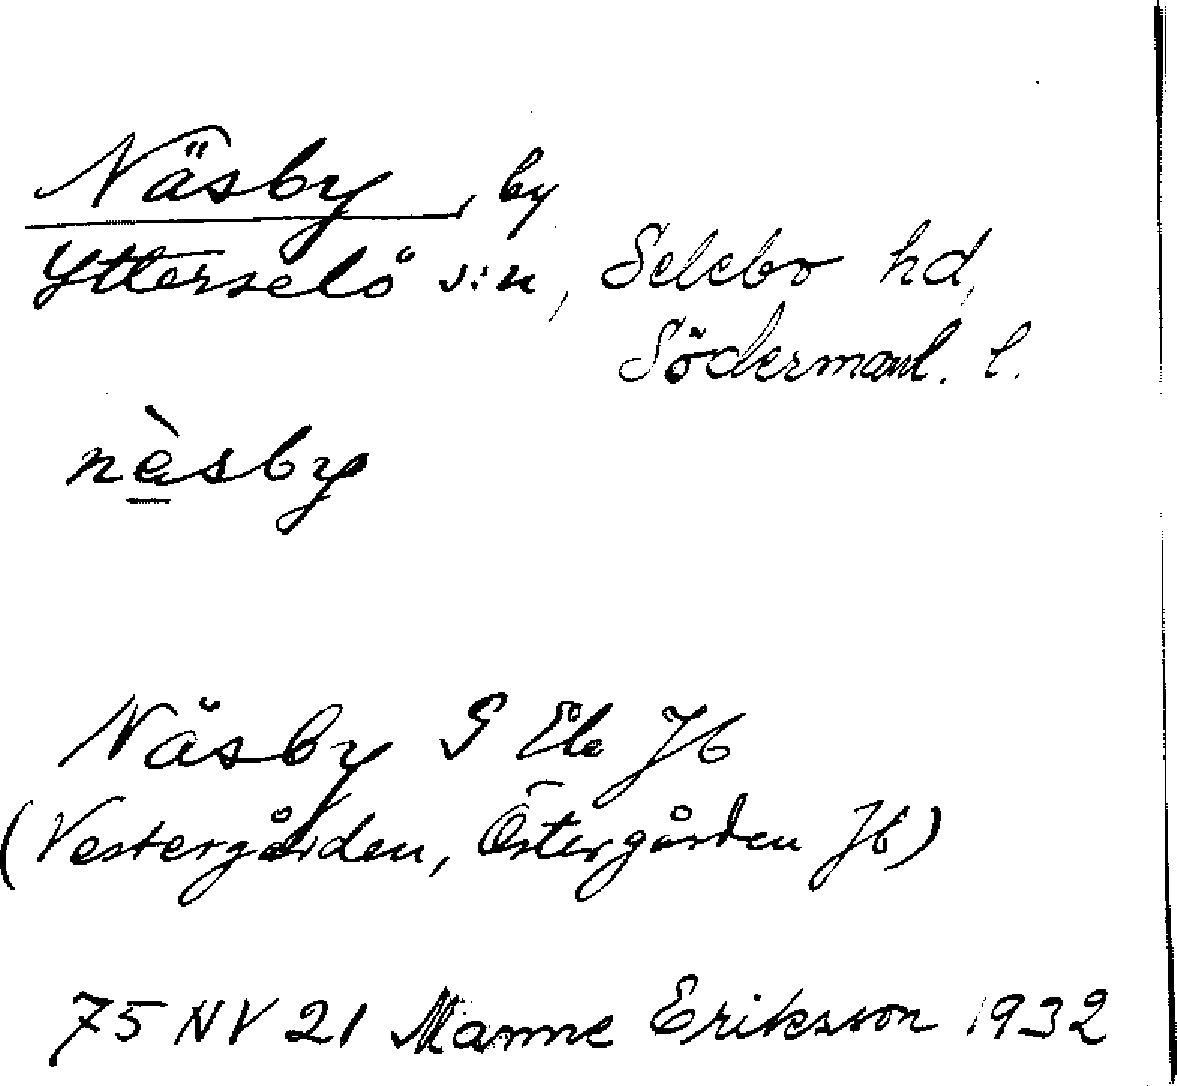 Näsby, by
Ytterselö s:n, Selebo hd,
Södermanl. l.
nèsby
Näsby G Ek Jb
(Vestergården, Östergården Jb)
75 NV 21 Manne Eriksson 1932